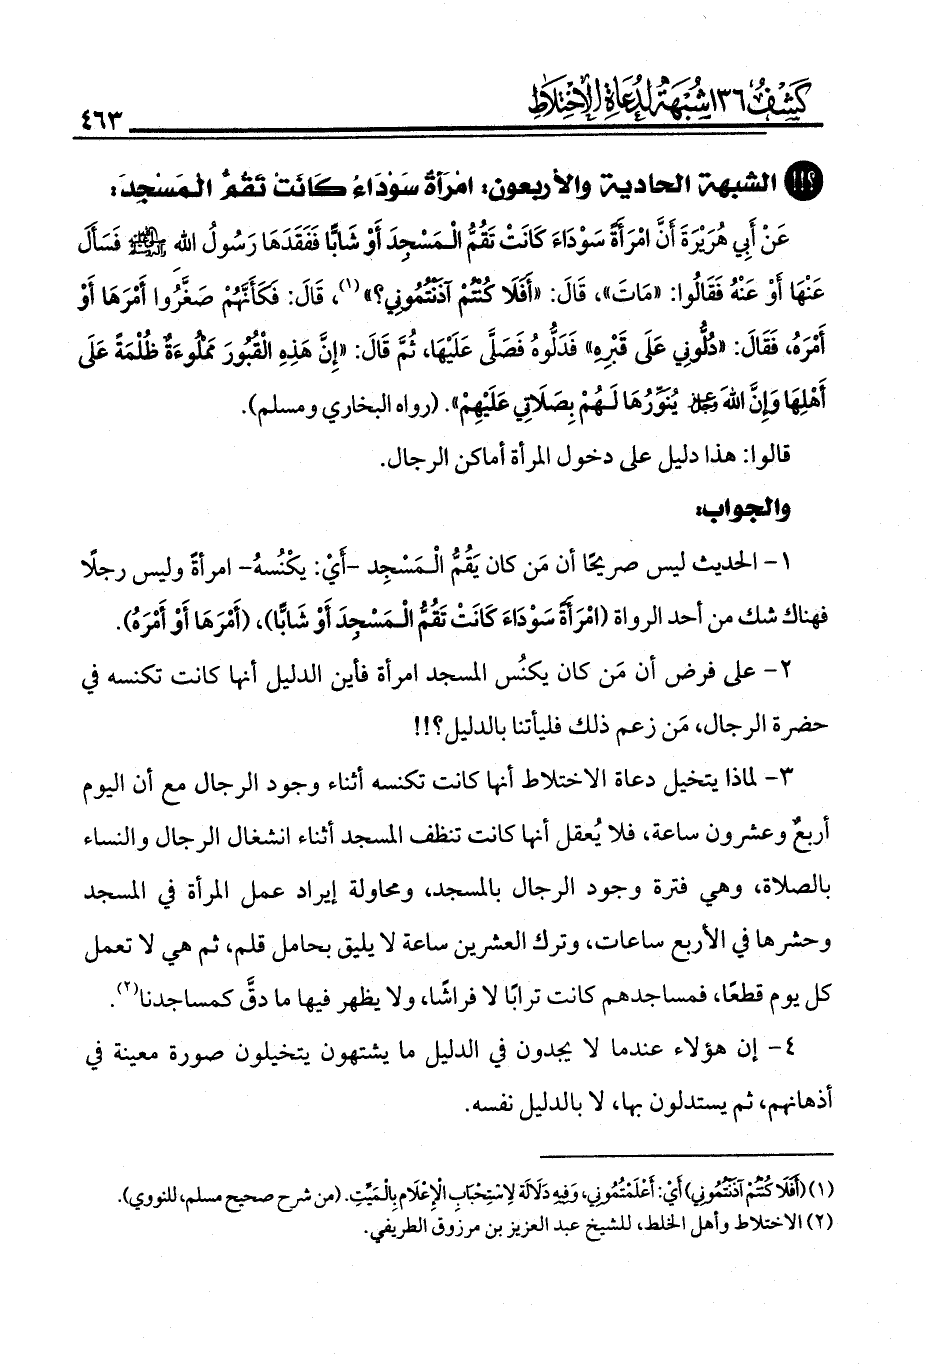 كَشْفُ ١٣٦ شُبْهَةً لِدُعَاةِ الِاخْتِلَاطِ
٤٦٣
الشبهة الحادية والأربعون: امْرَأَةً سَوْدَاءَ كَانَتْ تَقُمُّ الْمَسْجِدَ:
عَنْ أَبِي هُرَيْرَةَ أَنَّ امْرَأَةً سَوْدَاءَ كَانَتْ تَقُمُّ الْمَسْجِدَ أَوْ شَابًّا فَفَقَدَهَا رَسُولُ اللهِ ﷺ فَسَأَلَ
عَنْهَا أَوْ عَنْهُ فَقَالُوا: «مَاتَ»، قَالَ: «أَفَلَا كُنْتُمْ آذَنْتُمُونِي؟»(١)، قَالَ: فَكَأَنَّهُمْ صَغَّرُوا أَمْرَهَا أَوْ
أَمْرَهُ، فَقَالَ: «دُلُّونِي عَلَى قَبْرِهِ» فَدَلُّوهُ فَصَلَّى عَلَيْهَا، ثُمَّ قَالَ: «إِنَّ هَذِهِ الْقُبُورَ مَمْلُوءَةٌ ظُلْمَةً عَلَى
أَهْلِهَا وَإِنَّ اللهَ عَزَّ وَجَلَّ يُنَوِّرُهَا لَهُمْ بِصَلَاتِي عَلَيْهِمْ». (رواه البخاري ومسلم).
قالوا: هذا دليل على دخول المرأة أماكن الرجال.
والجواب:
١- الحديث ليس صريحًا أن مَن كان يَقُمُّ الْمَسْجِد -أَيْ: يكْنُسهُ- امرأةً وليس رجلًا
فهناك شك من أحد الرواة (امْرَأَةً سَوْدَاءَ كَانَتْ تَقُمُّ الْمَسْجِدَ أَوْ شَابًّا)، (أَمْرَهَا أَوْ أَمْرَهُ).
٢- على فرض أن مَن كان يكنُس المسجد امرأة فأين الدليل أنها كانت تكنسه في
حضرة الرجال، مَن زعم ذلك فليأتنا بالدليل؟!!
٣- لماذا يتخيل دعاة الاختلاط أنها كانت تكنسه أثناء وجود الرجال مع أن اليوم
أربعٌ وعشرون ساعة، فلا يُعقل أنها كانت تنظف المسجد أثناء انشغال الرجال والنساء
بالصلاة، وهي فترة وجود الرجال بالمسجد، ومحاولة إيراد عمل المرأة في المسجد
وحشرها في الأربع ساعات، وترك العشرين ساعة لا يليق بحامل قلم، ثم هي لا تعمل
كل يوم قطعًا، فمساجدهم كانت ترابًا لا فراشًا، ولا يظهر فيها ما دقَّ كمساجدنا(٢).
٤- إن هؤلاء عندما لا يجدون في الدليل ما يشتهون يتخيلون صورة معينة في
أذهانهم، ثم يستدلون بها، لا بالدليل نفسه.
(١) (أَفَلَا كُنْتُمْ آذَنْتُمُونِي) أَيْ: أَعْلَمْتُمُونِي، وَفِيهِ دَلَالَة لِاسْتِحْبَابِ الْإِعْلَام بِالْمَيِّتِ. (من شرح صحيح مسلم، للنووي).
(٢) الاختلاط وأهل الخلط، للشيخ عبد العزيز بن مرزوق الطريفي.